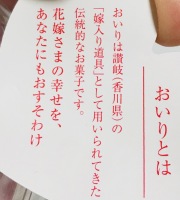 おいりとは
おいりは讃岐(香川県)の
「嫁入り道具」として用いられてきた
伝統的なお菓子です。
花嫁さまの幸せを、
あなたにもおすそわけ